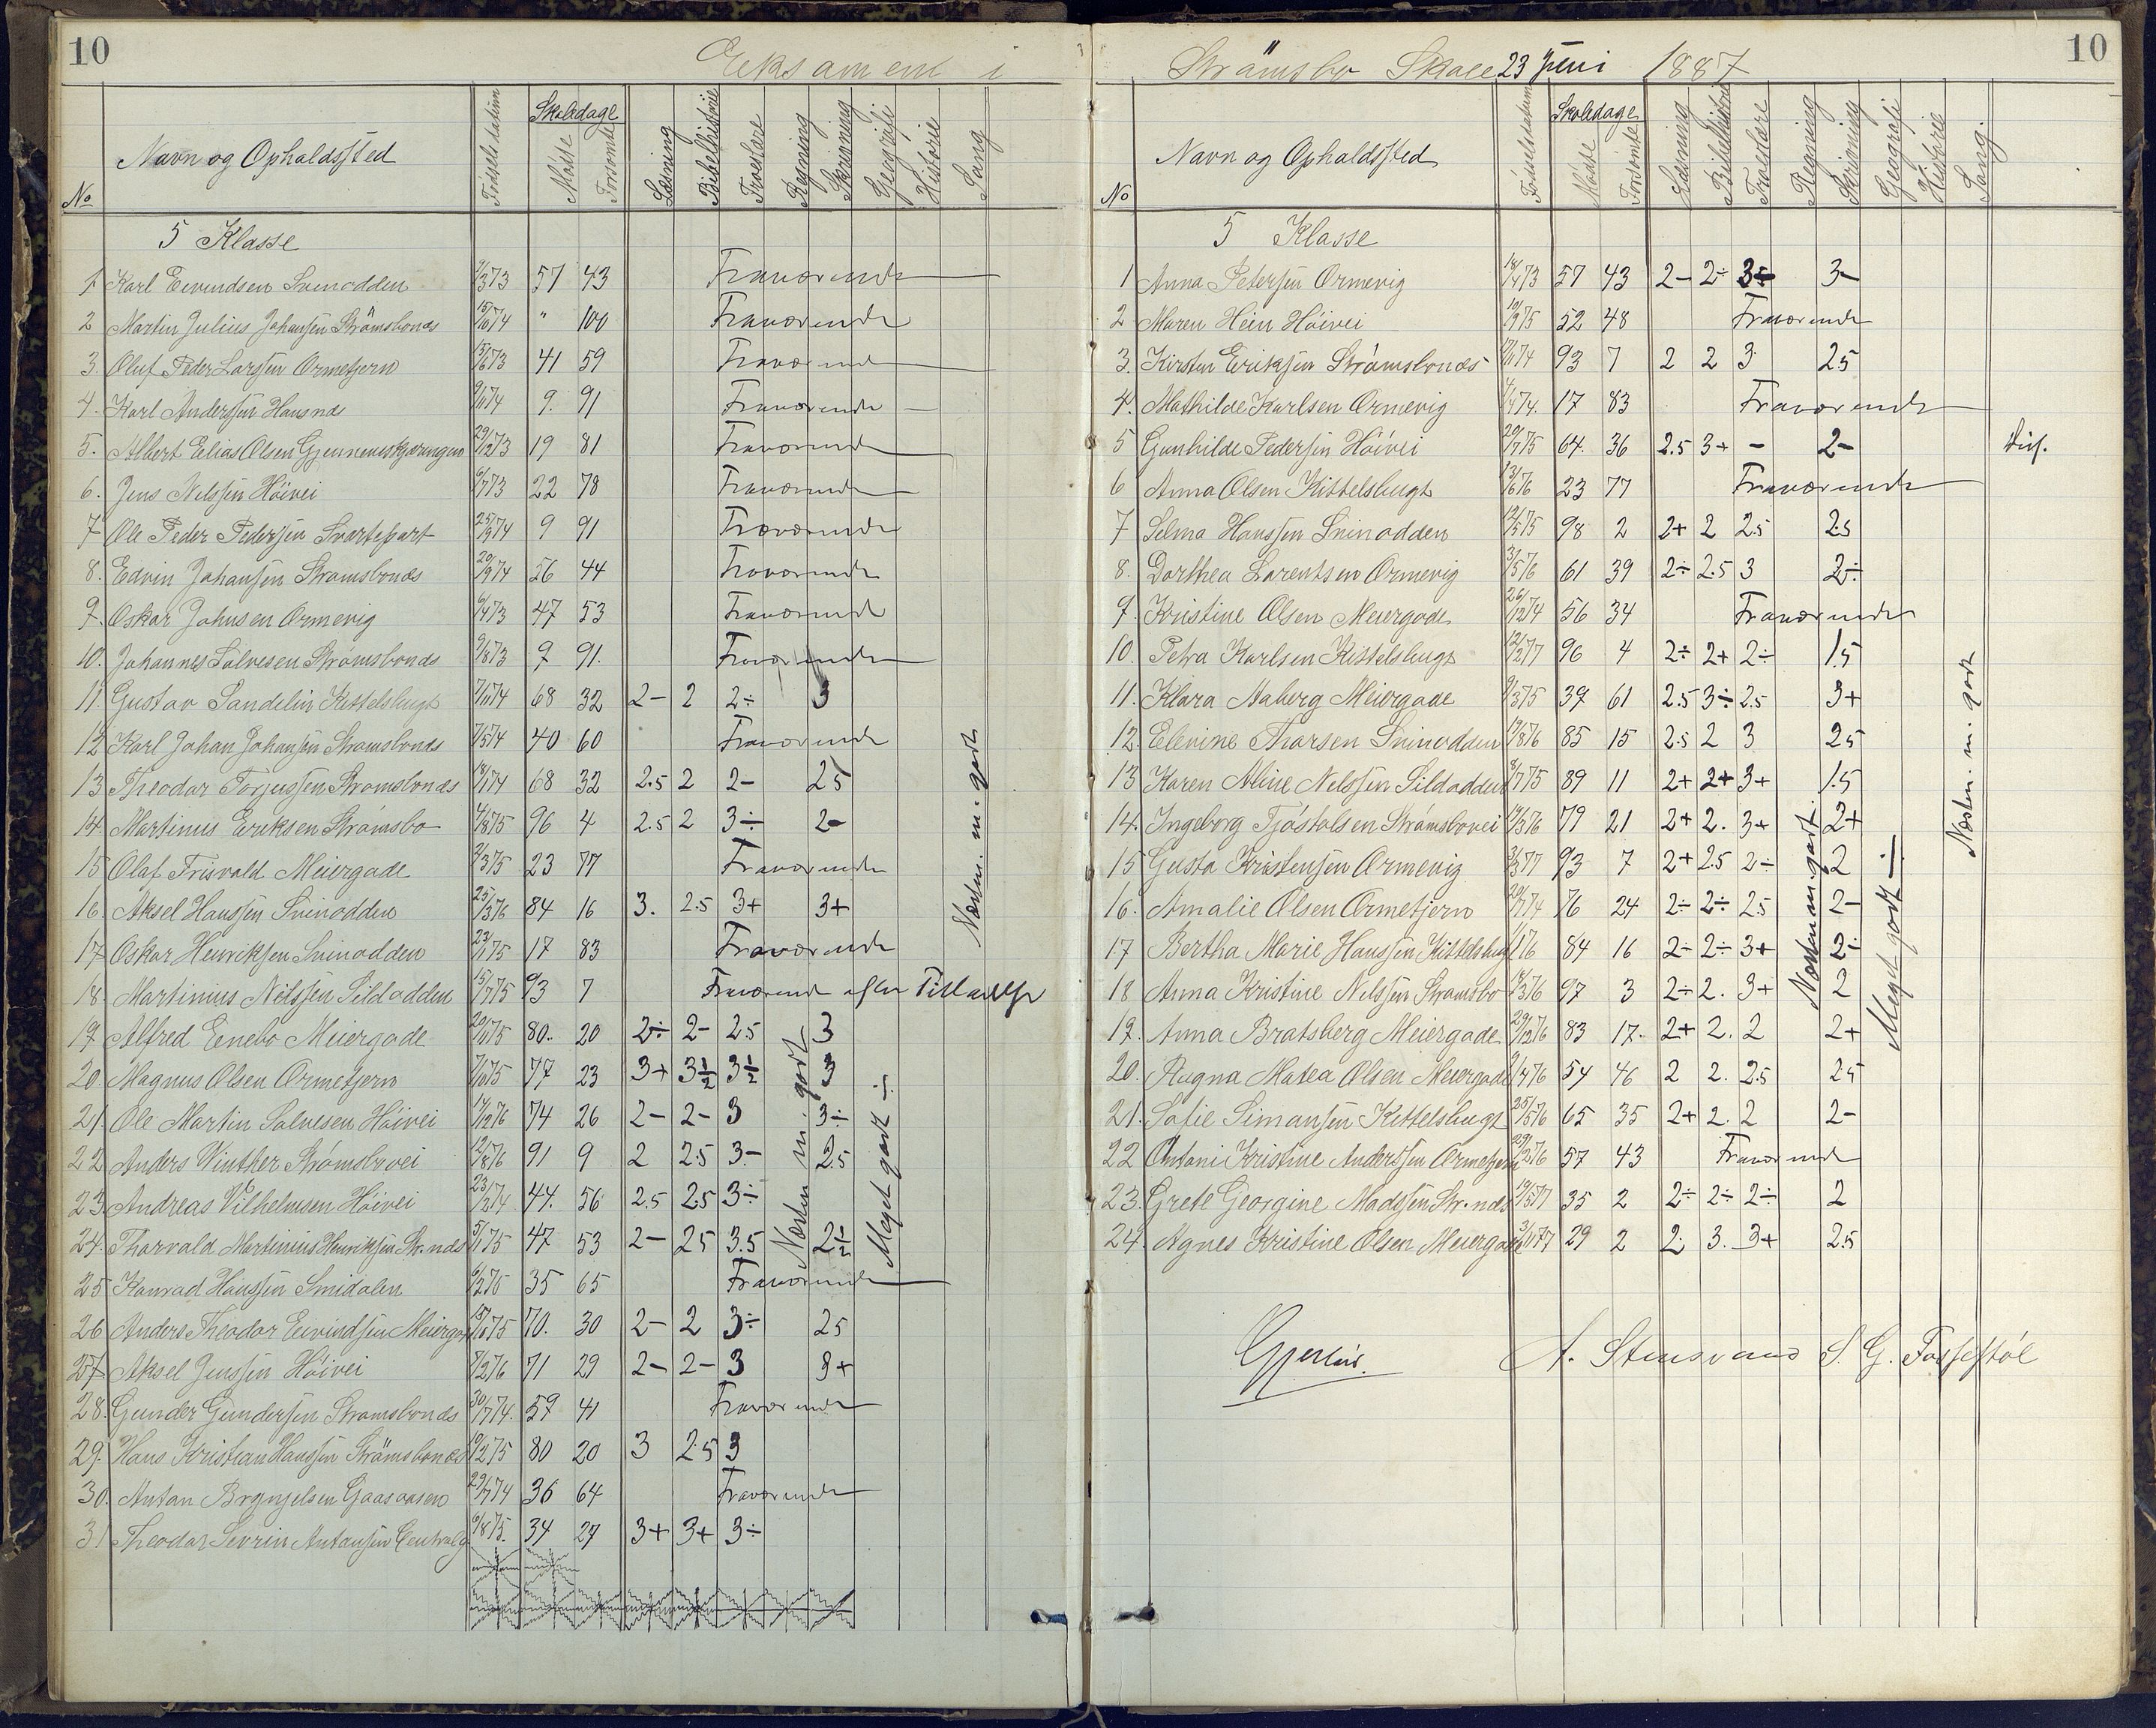 10
Eksamen i
No Navn og Opholdssted Fødselsdatum Skoledage Mødte Forsømte Læsning Bibelhistorie Troeslære Regning Skrivning Geografi Historie Sang
5 Klasse
1 Karl Eevendsen Svinodden 57 43 Fraværende
2 Martin Julius Johansen Strømsbonds 15/10 74 " 100 Fraværende
3. Oluf Peder Larssen Ormetjern 15/6 73 41 59 Fraværende
4. Karl Anderssen Hausnds 9/11 74 9. 91 Fraværende
5. Albert Elias Olsen 29/12 73 19 81 Fraværende
6. Jens Nilssen Höivei 6/7 73 22 78 Fraværende
7 Ole Peder Pedersen Svartepart 25/3 74 9 91 Fraværende
8. Edvin Johansen Strømsbonds 20/9 74 56 44 Fraværende
9. Oskar Johnsen Ormevig 6/4 73 47 53 Fraværende
10. Johannes Salvesen Strømsbonds 9/8 73 9 91. Fraværende
11. Gustav Sandelin Kittelsbugt 7/11 74 68 32 2- 2 2÷ 3
12 Karl Johan Johansen Strømsbonds 7/5 74 40 60 Fraværende
13 Theodor Torjussen Strømsbonds 18/1 74 68 32 2.5 2 2- 25
14. Martinus Eriksen Strømsbo 4/8 75 96 4 2.5 2 3÷ 2-
15 Olaf Frisvold Meiergade 2/3 75 23 77 Fraværende
16. Aksel Hanssen Svinodden 25/3 76 84 16 3. 2.5 3+ 3+
17 Oskar Henriksen Svinodden 17 83 Fraværende
18. Martinius Nilssen Sildodden 15/7 75 93 7 Fraværende efter Tilladelse
19. Alfred Enebo Meiergade 20/11 75 80. 20 2÷ 2- 2.5 3
20. Magnus Olsen Ormetjern 7/10 75 77 23 3+ 3½ 3½ 3
21. Ole Martin Salvesen Höivei 74 26 2- 2- 3 3÷
22 Anders Winther Strømsbovei 12/8 76 91 9 2 2.5 3- 2.5
23. Andreas Vilhelmsen Höivei 44. 56 2.5 2.5 3÷
24. Thorvald Martinius Henriksen Str.nds 5/1 75 47 53 2- 25 3.5 2½
25 Konrad Hanssen Smidalen 35 65 Fraværende
26 Anders Theodor Eivindsen 15/10 75 70. 30 2- 2 3÷ 25
27. Aksel Jenssen Höivei 71 29 2- 2- 3 3+
28. Gunder Gundersen Strømsbonds 30/7 74. 59 41 Fraværende
29. Hans Kristian Hanssen Strømsbonds 80 20 3 2.5 3
30. Anton Brynjelsen Gaasaasen 29/7 74 36 64 Fraværende
31 Theodor Sevrin Antonsen 6/8 75. 34 27 3+ 3+ 3÷
Næsten m. godt
Meget godt ÷
Næsten m. godt
10
Strømsbo Skole 23 Juni 1887
No Navn og Opholdssted Fødselsdatum Skoledage Mødte Forsømte Læsning Bibelhistorie Troeslære Regning Skrivning Geografi Historie Sang.
5 Klasse
1 Anna Petersen Ormevig 18/4 73 57 43 2- 2÷ 3÷ 3-
2 Maren Hein Höivei 52 48 Fraværende
3. Kirsten Eriksen Strømsbonds 93 7 2 2 3 2.5
4. Mathilde Karlsen Ormevig 17 83 Fraværende
5 Gunhilde Pedersen Höivei 20/7 75 64. 36 2.5 3+ - 2-
6 Anna Olsen Kittelsbugt 13/6 76 23 77 Fraværende
7 Selma Hanssen Svinodden 12/5 75 98 2 2+ 2 2.5 2.5
8. Dorthea Larentsen Ormevig 3/5 76 61 39 2÷ 2.5 3 2÷
9. Kristine Olsen Meiergade 26/12 74 56 34 Fraværende
10. Petra Karlsen Kittelsbugt 12/2 77 96 4 2÷ 2+ 2÷ 1.5
11. Klara Aaberg Meiergade 9/3 75 39 61 2.5 3÷ 2.5 3+
12. Elevine Thorsen Svinodden 85 15 2.5 2 3 25
13 Karen Aline Nilssen Sildodden 89 11 2+ 2+ 3+ 1.5
14. Ingeborg Tjöstolsen Strømsbovei 79 21 2+ 2. 3+ 2+
15 Gusta Kristensen Ormevig 93 7 2+ 2.5 2÷ 2
16. Amalie Olsen Ormetjern 76 24 2÷ 2÷ 2.5 2-
17 Bertha Marie Hanssen Kittelsbugt 84 16 2÷ 2÷ 3+ 2÷
18 Anna Kristine Nilssen Strømsbo 97 3 2÷ 2. 3+ 2
19. Anna Bratsberg Meiergade 29/12 76 83 17. 2+ 2. 2 2+
20. Ragna Matea Olsen Meiergade 54 46 2 2. 2.5 2.5
21. Sofie Simonsen Kittelsbugt 25/5 76 65 35 2+ 2. 2 2-
22 Antoni Kristine Anderssen Ormetjern 57 43 Fraværende
23. Grete Georgine Madssen Str.nds 19/5 77 35 2 2÷ 2÷ 2÷ 2
24. Agnes Kristine Olsen Meiergade 29 2 2. 3. 3+ 2.5
Næsten m. godt
Meget godt ÷
Næsten m. godt
A. Stensvand S. G. Fossestøl